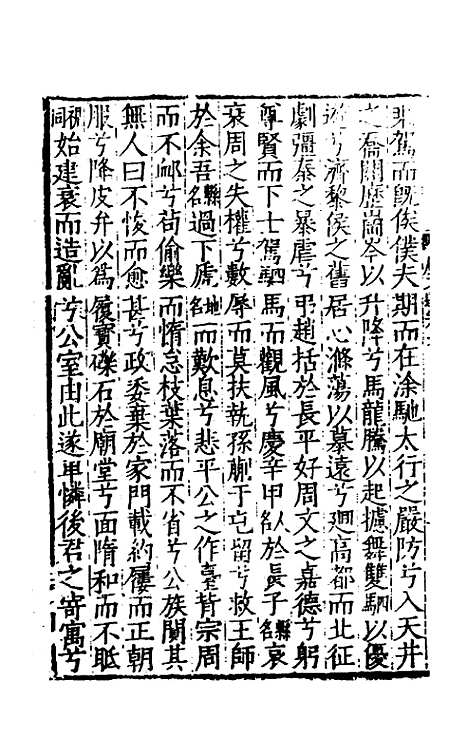 駕而既俟僕夫期而在涂馳太行之嚴防兮入天井
之喬關歷崗岑以升降兮馬龍騰以起攄舞雙駟以優
遊兮濟黎侯之舊居心滌蕩以慕遠兮迴高都而北征
劇彊秦之暴虐兮弔趙括於長平好周文之嘉德兮躬
尊賢而下士駕駟馬而觀風兮慶辛甲於長子縣名哀
衰周之失權兮數辱而莫扶執孫蒯于屯留兮救王師
於余吾縣名過下虒地名而歎息兮悲平公之作臺背宗周
而不卹兮苟偷樂而惰怠枝葉落而不省兮公族闃其
無人曰不悛而愈甚兮政委棄於家門載約屨而正朝
服兮降皮弁以為履寶礫石於廟堂兮面隋和而不眡
視同始建衰而造亂兮公室由此遂卑憐後君之寄寓兮